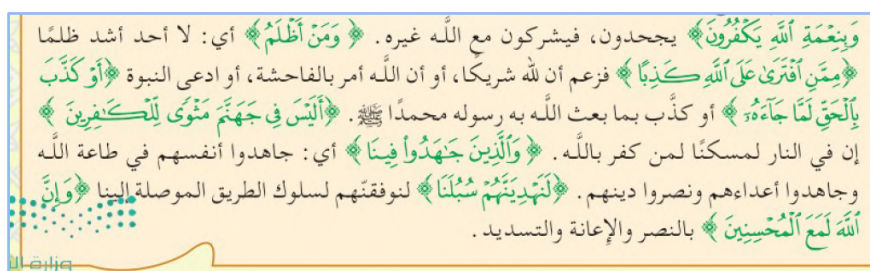 وَبِنِعْمَةِ ٱللَّهِ يَكْفُرُونَ﴾ يجحدون، فيشركون مع اللَّه غيره. ﴿وَمَنْ أَظْلَمُ﴾ أي: لا أحد أشد ظلمًا
﴿مِمَّنِ ٱفْتَرَىٰ عَلَى ٱللَّهِ كَذِبًا﴾ فزعم أن لله شريكًا، أو أن اللَّه أمر بالفاحشة، أو ادعى النبوة ﴿أَوْ كَذَّبَ
بِٱلْحَقِّ لَمَّا جَآءَهُۥ﴾ أو كذَّب بما بعث اللَّه به رسوله محمدًا ﷺ. ﴿أَلَيْسَ فِى جَهَنَّمَ مَثْوًى لِّلْكَـٰفِرِينَ﴾
إن في النار لمسكنًا لمن كفر باللَّه. ﴿وَٱلَّذِينَ جَـٰهَدُوا۟ فِينَا﴾ أي: جاهدوا أنفسهم في طاعة اللَّه
وجاهدوا أعداءهم ونصروا دينهم. ﴿لَنَهْدِيَنَّهُمْ سُبُلَنَا﴾ لنوفقنّهم لسلوك الطريق الموصلة إلينا ﴿وَإِنَّ
ٱللَّهَ لَمَعَ ٱلْمُحْسِنِينَ﴾ بالنصر والإعانة والتسديد.
وزارة